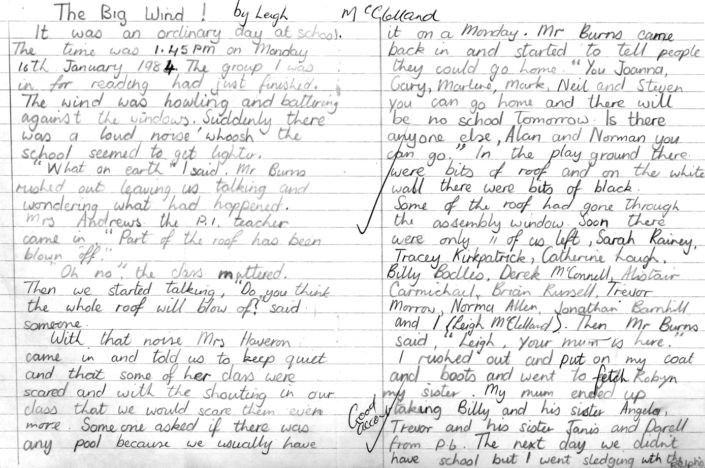 The Big Wind! by Leigh McClelland
It was an ordinary day at school.
The time was 1.45 pm on Monday
16th January 1984 The group I was
in for reading had just finished.
The wind was howling and battering
against the windows. Suddenly there
was a loud noise 'whoosh' the
school seemed to get lighter.
"What on earth" I said. Mr Burns
rushed out leaving us talking and
wondering what had happened.
Mrs Andrews the P.1. teacher
came in "Part of the roof has been
blown off."
"Oh no" the class muttered.
Then we started talking, "Do you think
the whole roof will blow of?" said
someone.
With that noise Mrs Haveron
came in and told us to keep quiet
and that some of her class were
scared and with the shouting in our
class that we would scare them even
more. Some one asked if there was
any pool because we usually have
it on a Monday. Mr Burns came
back in and started to tell people
they could go home. "You Joanna,
Gary, Marlene, Mark, Neil and Steven
you can go home and there will
be no school tomorrow. Is there
anyone else, Alan and Norman you
can go." In the play ground there
were bits of roof and on the white
wall there were bits of black.
Some of the roof had gone through
the assembly window. Soon there
were only 11 of us left, Sarah Rainey,
Tracey Kirkpatrick, Catherine Lough,
Billy Bodles, Derek McConnell, Alistair
Carmichael, Brian Russell, Trevor
Morrow, Norma Allen, Jonathan Barnhill
and I (Leigh McClelland). Then Mr Burns
said, "Leigh, your mum is here."
I rushed out and put on my coat
and boots and went to fetch Robyn
my sister. My mum ended up
taking Billy and his sister Angela,
Trevor and his sister Janis and Darell
from P.6. The next day we didn't
have school but I went sledging with the
Good